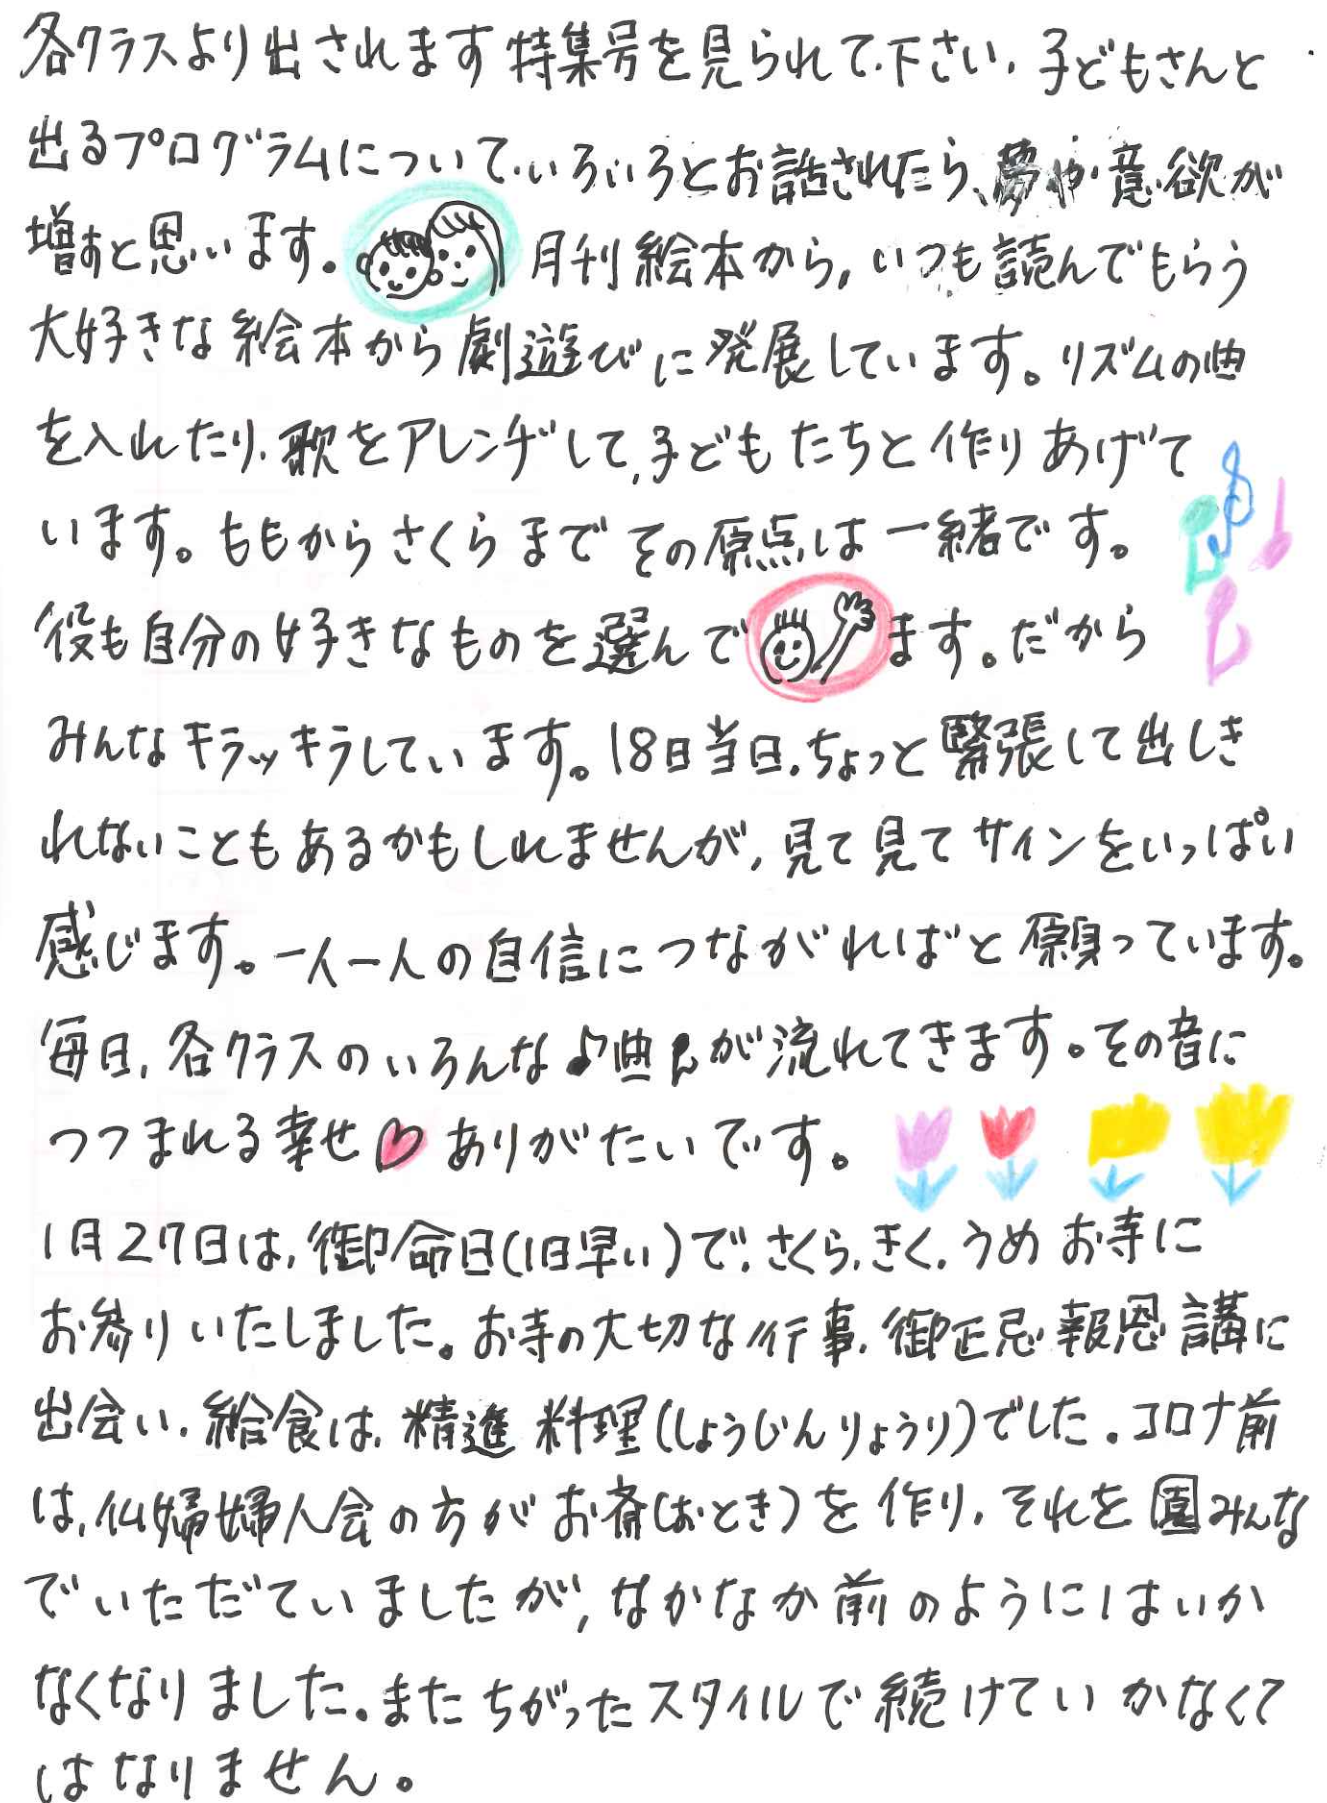 各クラスより出されます特集号を見られて、下さい。子どもさんと
出るプログラムについて、いろいろとお話されたら、夢や意欲が
増すと思います。月刊絵本から、いつも読んでもらう
大好きな絵本から劇遊びに発展しています。リズムの曲
を入れたり、歌をアレンヂして、子どもたちと作りあげて
います。ももからさくらまでその原点は一緒です。
役も自分の好きなものを選んでます。だから
みんなキラッキラしています。18日当日、ちょっと緊張して出しき
れないこともあるかもしれませんが、見て見てサインをいっぱい
感じます。一人一人の自信につながればと願っています。
毎日、各クラスのいろんな♪曲♪が流れてきます。その音に
つつまれる幸せ♡ありがたいです。
1月27日は、御命日(1日早い)で、さくら、きく、うめお寺に
お参りいたしました。お寺の大切な行事、御正忌報恩講に
出会い、給食は、精進料理(しょうじんりょうり)でした。コロナ前
は、仏婦婦人会の方がお斎(おとき)を作り、それを園みんな
でいただていましたが、なかなか前のようにはいか
なくなりました。またちがったスタイルで続けていかなくて
はなりません。